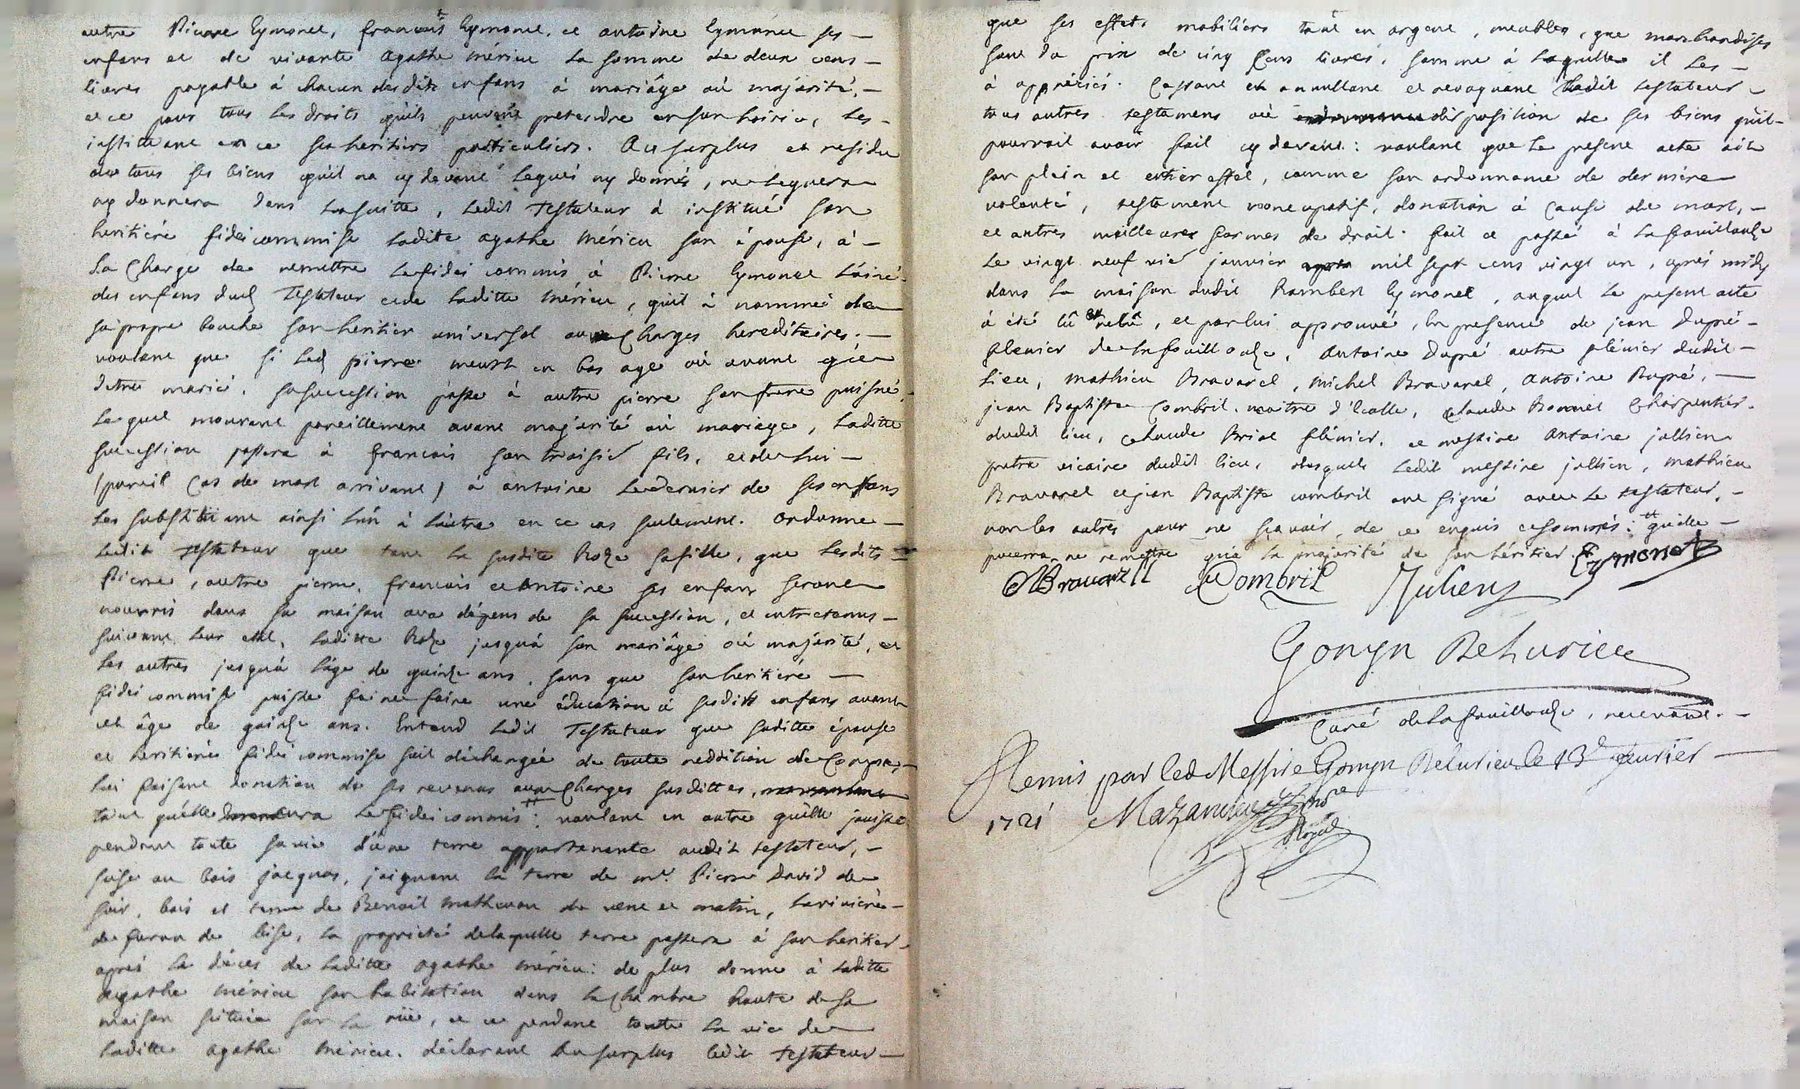 autre Pierre Eymonet, francois Eymonet, et antoine Eymonet ses —
enfans et de vivante agathe mérieu la somme de deux cens —
livres payable à chacun desdits enfans à mariâge où majorité, —
et ce pour tous les droits qu'ils peuvent pretendre en son hoirie, les —
instituant en ce ses heritiers particuliers. Au surplus et residu
de tous ses biens qu'il na cy devant legués ny donnés, ne leguera
ny donnera dans la suitte, ledit Testateur à institué son
heritiére fideicommisse ladite agathe mérieu son épouse, à —
la charge de remettre le fidei commis à Pierre Eymonet l'ainé
des enfans dud Testateur et de laditte mérieu, qu'il à nommé de
sa propre bouche son heritier universel aux charges hereditaires; —
voulant que si led pierre meurt en bas age où avant que
d'etre marié, sa succession passe à autre pierre son frere puisné,
lequel mourant pareillement avant majorité où mariage, laditte
succession passera à francois son troisie fils, et de lui —
(pareil cas de mort arrivant) à antoine le dernier de ses enfans
les substituant ainsi l'un à l'autre en ce cas seulement. ordonne —
ledit Testateur que tant la susdite Roze sa fille, que lesdits —
Pierre, autre pierre, francois et Antoine ses enfans seront
nourris dans sa maison aux dépens de sa succession, et entretenus —
suivant leur etat, laditte Roze jusqu'à son mariâge où majorité, et
les autres jusqu'à l'âge de quinze ans, sans que son heritiére —
fidei commisse puisse faire une éducation à susdits enfans avant
cet âge de quinze ans. Entend ledit Testateur que saditte épouse
et heritiére fidei commisse soit déchargée de toute reddition de compte, —
lui faisant donation de ses revenus aux charges susdittes,
tant qu'elle le fideicommis: voulant en outre qu'elle jouisse
pendant toute sa vie d'une terre appartenante audit testateur, —
size au bois jacquos, joignant la terre de mr. Pierre David de
soir, bois et terre de Benoit mathevon de vent et matin, la riviére —
de furan de bise, la propriété de laquelle terre passera à son heritier
aprés le décés de laditte agathe mérieu: de plus donne à laditte
agathe mérieu son habitation dans la chambre haute de sa
maison située sur la rüe, et ce pendant toute la vie de
laditte agathe mérieu. déclarant au surplus ledit testateur —
que ses effets mobiliers tant en argent, meubles, que marchandises
sont du prix de cinq cens livres, somme à laquelle il les —
à appréciés. Cassant et annullant et revoquant ledit testateur —
tous autres testamens où disposition de ses biens qu'il —
pourroit avoir fait cy devant: voulant que le present acte ait
son plein et entier effet, comme son ordonnance de derniére
volonté, testament noncupatif, donation à cause de mort, —
et autres meilleures formes de droit. fait et passé à Lafouillouze
le vingt neuf vie janvier mil sept cens vingt un, aprés midy
dans la maison dudit Rambert Eymonet, auquel le present acte
à été lû et relû, et par lui approuvé, en presence de jean Dupré —
plenier de Lafouillouze, Antoine Dupré autre plénier dudit —
lieu, mathieu Bravarel, michel Bravarel, Antoine Dupré, —
jean Baptiste Combril maitre d'école, claude Bonnet charpentier
dudit lieu, claude Briat plénier, et messire Antoine jullien
pretre vicaire dudit lieu, desquels ledit messire jullien, mathieu
Bravarel et jean Baptiste combril ont signé avec le testateur, —
non les autres pour ne scavoir, de ce enquis et sommés: qu'elle —
pourra ne remettre qu'à la majorité de son héritier. Eymonet
MBravarell Combril Juliens
Gonyn Delurieu
Curé de Lafouillouze, recevant. —
Remis par led Messire Gonyn Delurieu le 13e feurier —
1721 Mazancieu